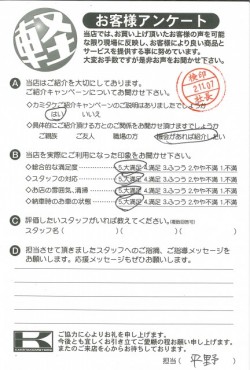 軽
お客様アンケート
当店では、お買い上げ頂いたお客様の声を可能
な限り現場に反映し、お客様により良い商品と
サービスを提供する事に努めています。
大変お手数ですが是非お声をお聞かせ下さい。
検印
2.11.07
A 当店はご紹介を大切にしております。
ご紹介キャンペーンについてお聞かせ下さい。
・カミタケご紹介キャンペーンのご説明はありましたでしょうか
はい いいえ
・具体的にご紹介頂ける方とのご関係をお聞かせ頂けますでしょうか
ご親族 ご友人 職場の方 機会があれば紹介したい
B 当店を実際にご利用になった印象をお聞かせ下さい。
・総合的な満足度 5.大満足 4.満足 3.ふつう 2.やや不満 1.不満
・スタッフの対応 5.大満足 4.満足 3.ふつう 2.やや不満 1.不満
・お店の雰囲気、清掃 5.大満足 4.満足 3.ふつう 2.やや不満 1.不満
・納車時のお車の状態 5.大満足 4.満足 3.ふつう 2.やや不満 1.不満
C 評価したいスタッフがいれば教えてください。
スタッフ名( )( )( )
D 担当させて頂きましたスタッフへのご指摘、ご指導メッセージを
お願いします。応援メッセージもぜひお願いします。
ご協力に心よりお礼を申し上げます。
今後とも宜しくお引き立てご愛顧の程お願い申し上げます。
またのご来店を心からお待ちしております。
担当( 平野 )